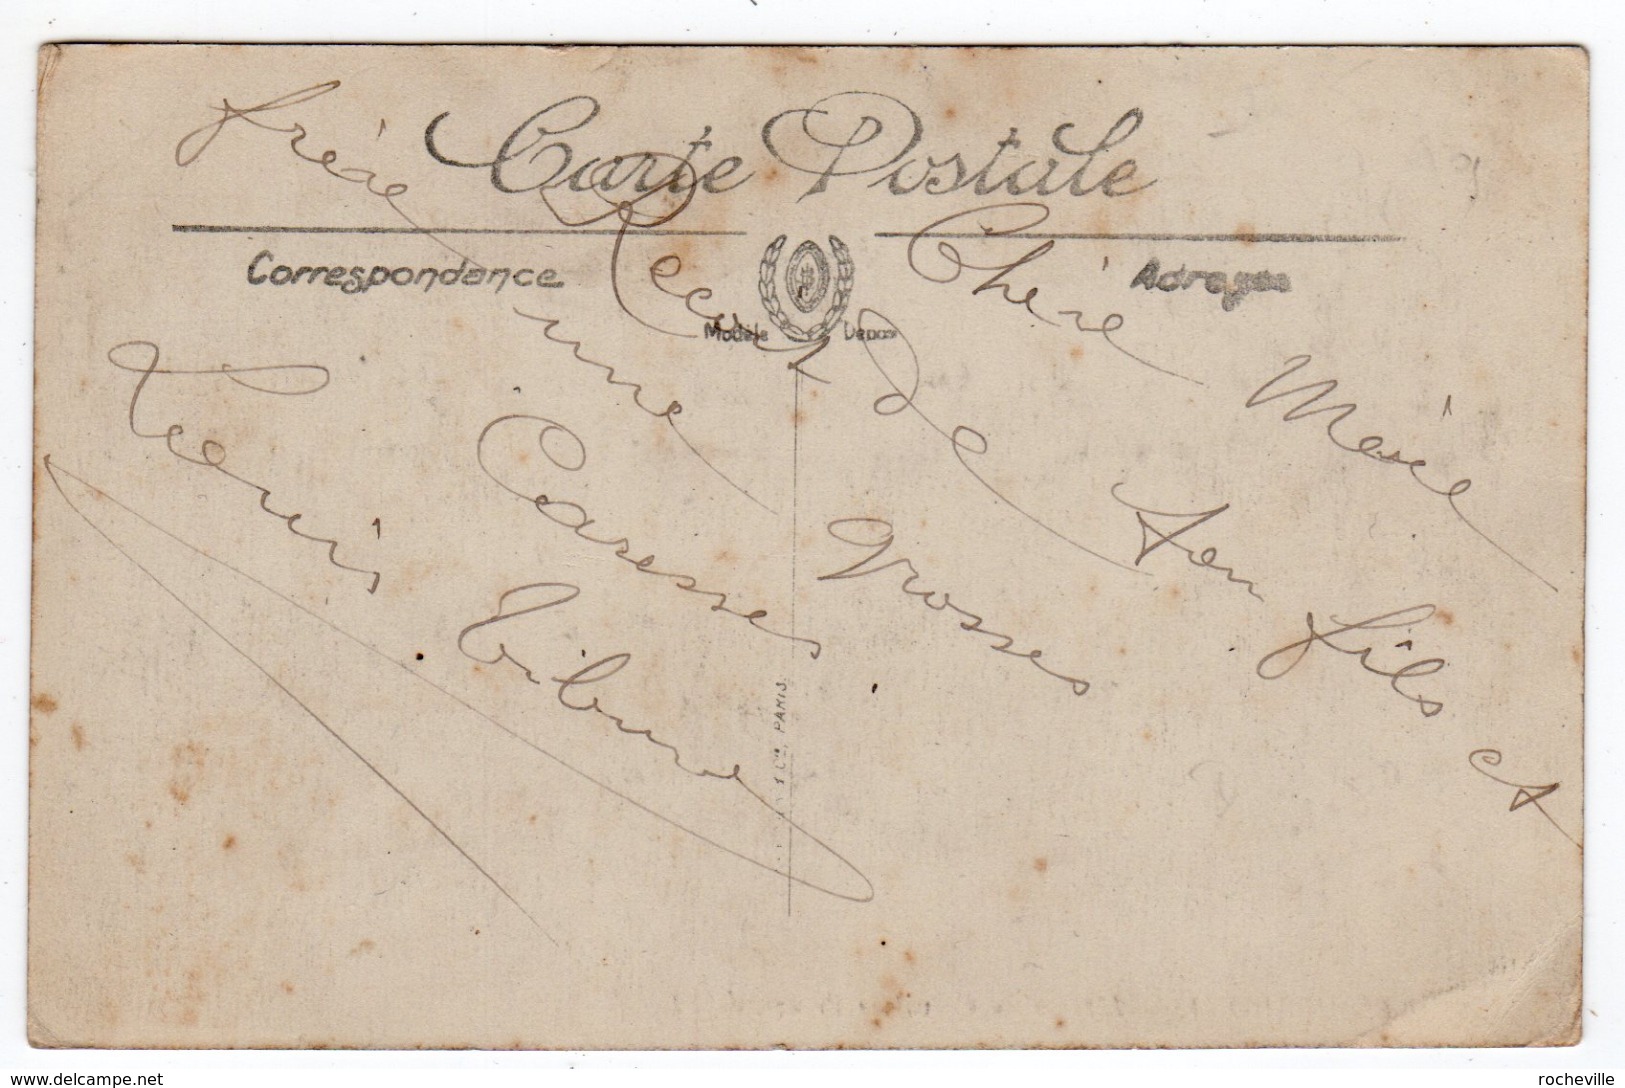 Carte Postale
Correspondance
Adresse
Modèle Déposé
Chère Mère
Recois de ton fils et
frère une grosses
Caresses
Tibure
& Cie, PARIS.
delcampe.net
rocheville